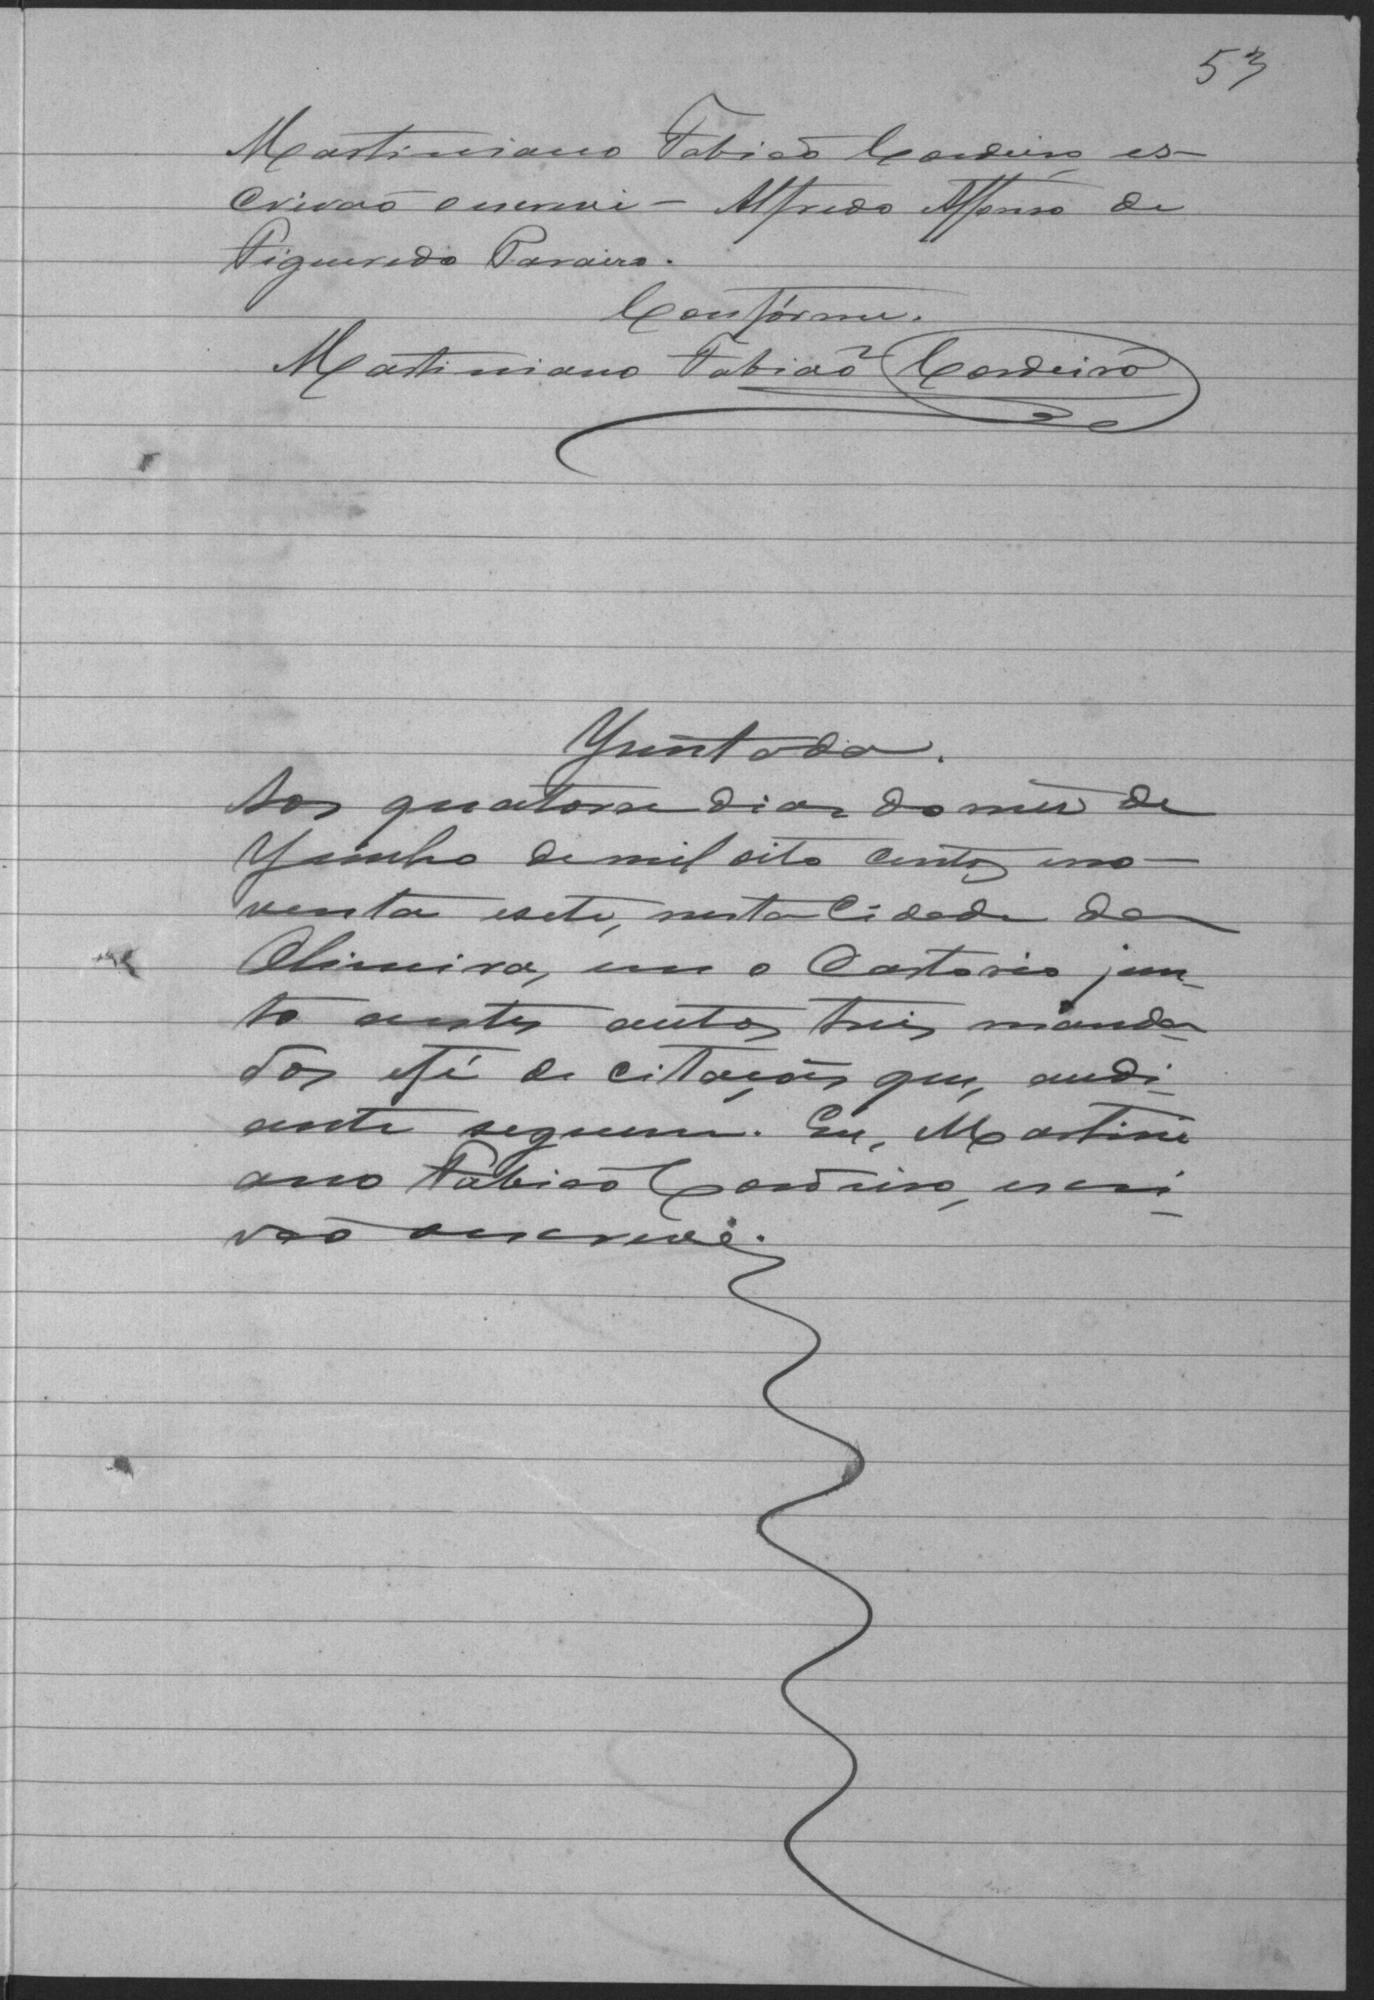 53
Martiniano Fabião Cordeiro, es-
crivão o escrevi - Alfredo Affonso de
Figueredo Paraizo.
Confórme.
Martiniano Fabião Cordeiro
Juntada.
Aos quatorze dias do mez de
Junho de mil oito centos e no-
venta e sete, nesta Cidade da
Oliveira, em o Cartorio jun-
to a estes autos tres manda-
dos e fé de citações que, a edi-
ante seguem. Eu, Martini
ano Fabião Cordeiro, escri-
vão o escrevi.